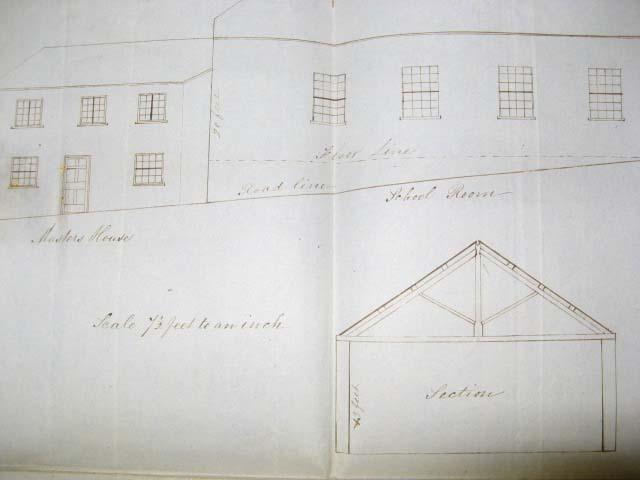 Floor Line
Road line
School Room
Masters House
Scale 7½ feet to an inch
Section
feet